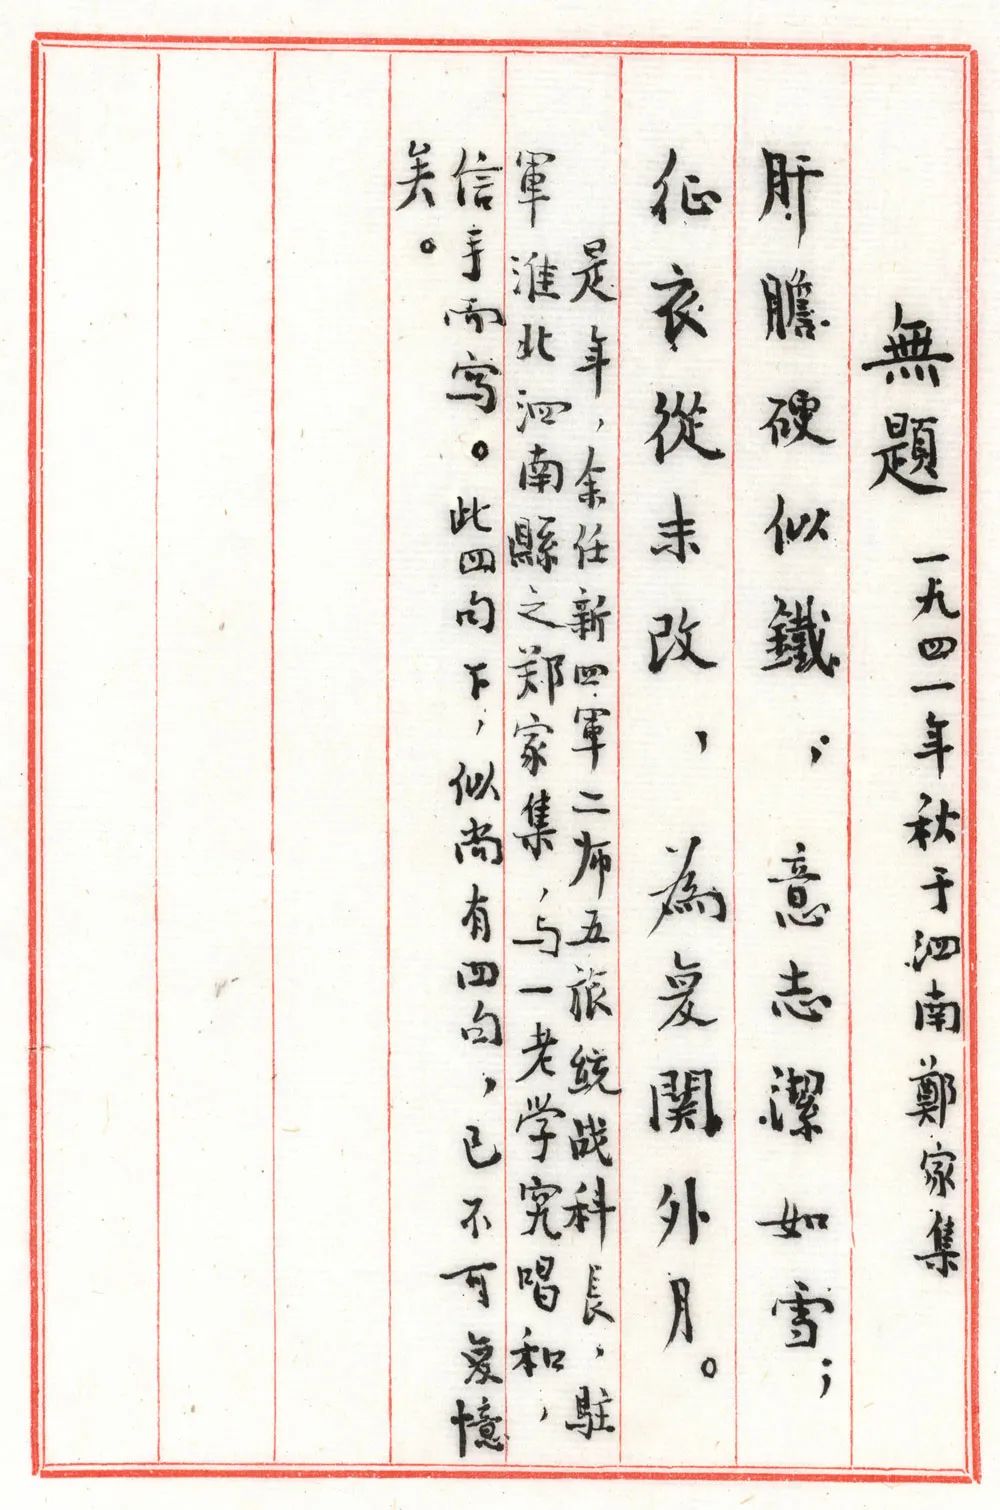 無題 一九四一年秋于泗南鄭家集
肝膽硬似鐵，意志潔如雪；
征衣從未改，為复関外月。
是年，余任新四軍二师五旅統战科長，駐
軍淮北泗南縣之郑家集，与一老学究唱和，
信手而写。此四句下，似尚有四句，已不可复憶
矣。